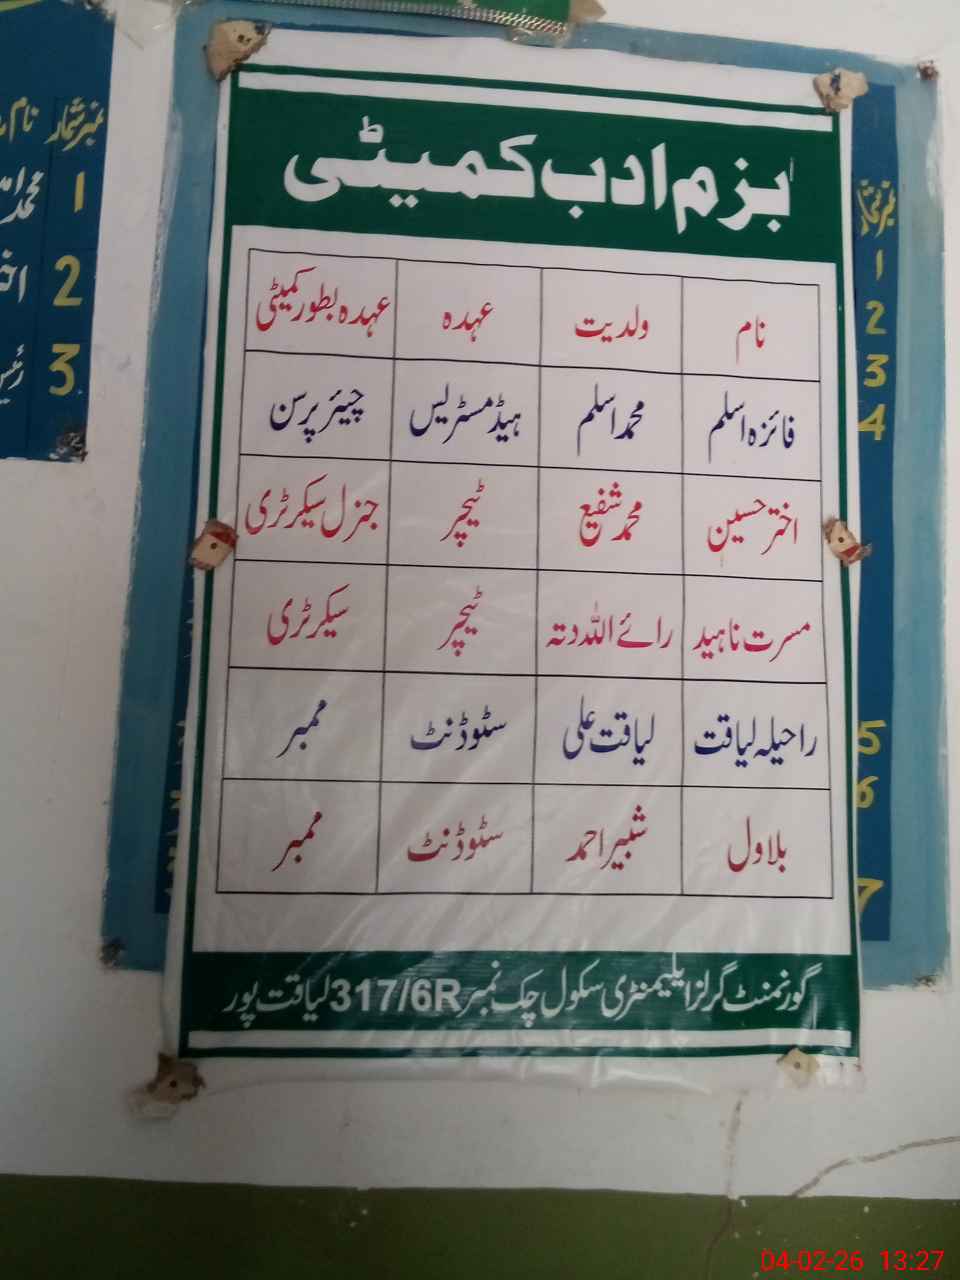 بزم ادب کمیٹی
نام ولدیت عہدہ عہدہ بطور کمیٹی
فائزہ اسلم محمد اسلم ہیڈ مسٹریس چیئر پرسن
اختر حسین محمد شفیع ٹیچر جنرل سیکرٹری
مسرت ناہید رائے اللہ دتہ ٹیچر سیکرٹری
راحیلہ لیاقت لیاقت علی سٹوڈنٹ ممبر
بلاول شبیر احمد سٹوڈنٹ ممبر
گورنمنٹ گرلز ایلیمنٹری سکول چک نمبر 317/6R لیاقت پور
نمبر شمار نام
1 محمد
2
3
1
2
3
4
5
6
7
04-02-26 13:27